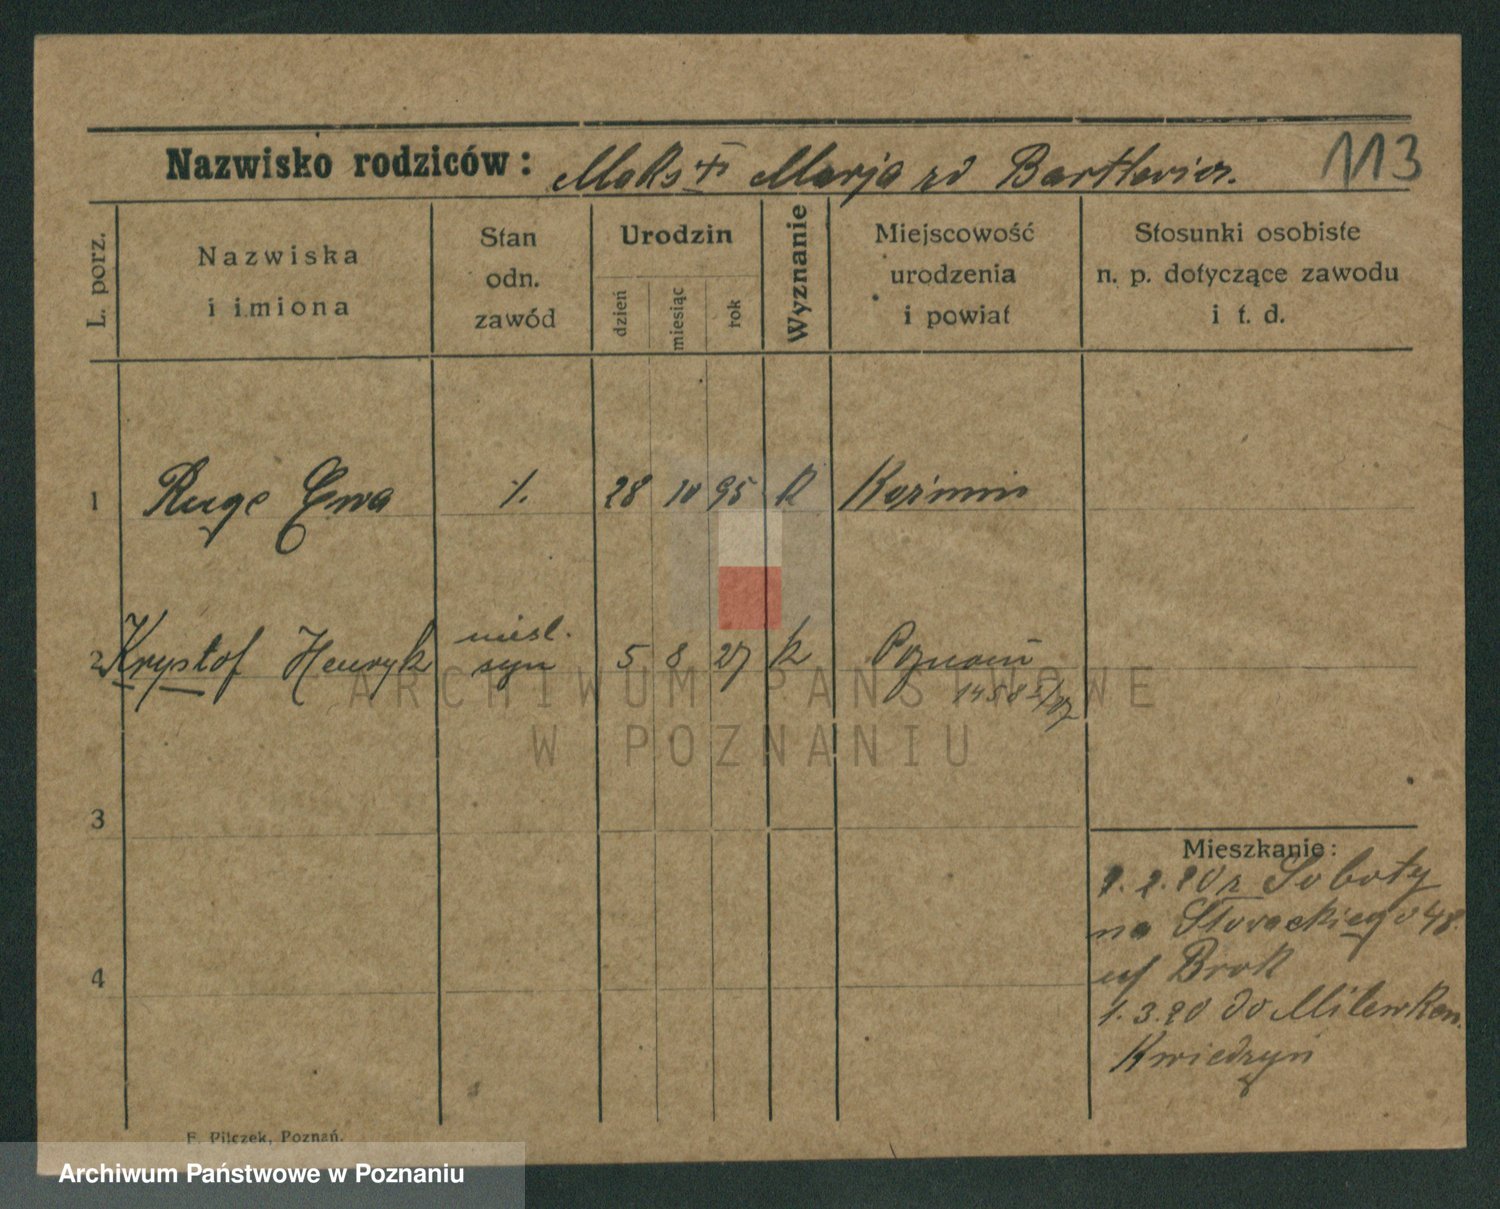 Nazwisko rodziców: Maks + i Marja zd Bartlewicz. 113
L. porz.
Nazwiska
i imiona
Stan
odn.
zawód
Urodzin
dzień
miesiąc
rok
Wyznanie
Miejscowość
urodzenia
i powiat
Stosunki osobiste
n. p. dotyczące zawodu
i t. d.
1 Ruge Ewa /. 28 10 95 k Koźmin
nieśl.
2 Krystof Henryk syn 5 8 27 k Poznań
1458
3
4
Mieszkanie:
z Soboty
na Słowackiego 48.
Brok
1.3.20 do
Kwiedzyń
F. Pilczek, Poznań.
ARCHIWUM PAŃSTWOWE
W POZNANIU
Archiwum Państwowe w Poznaniu